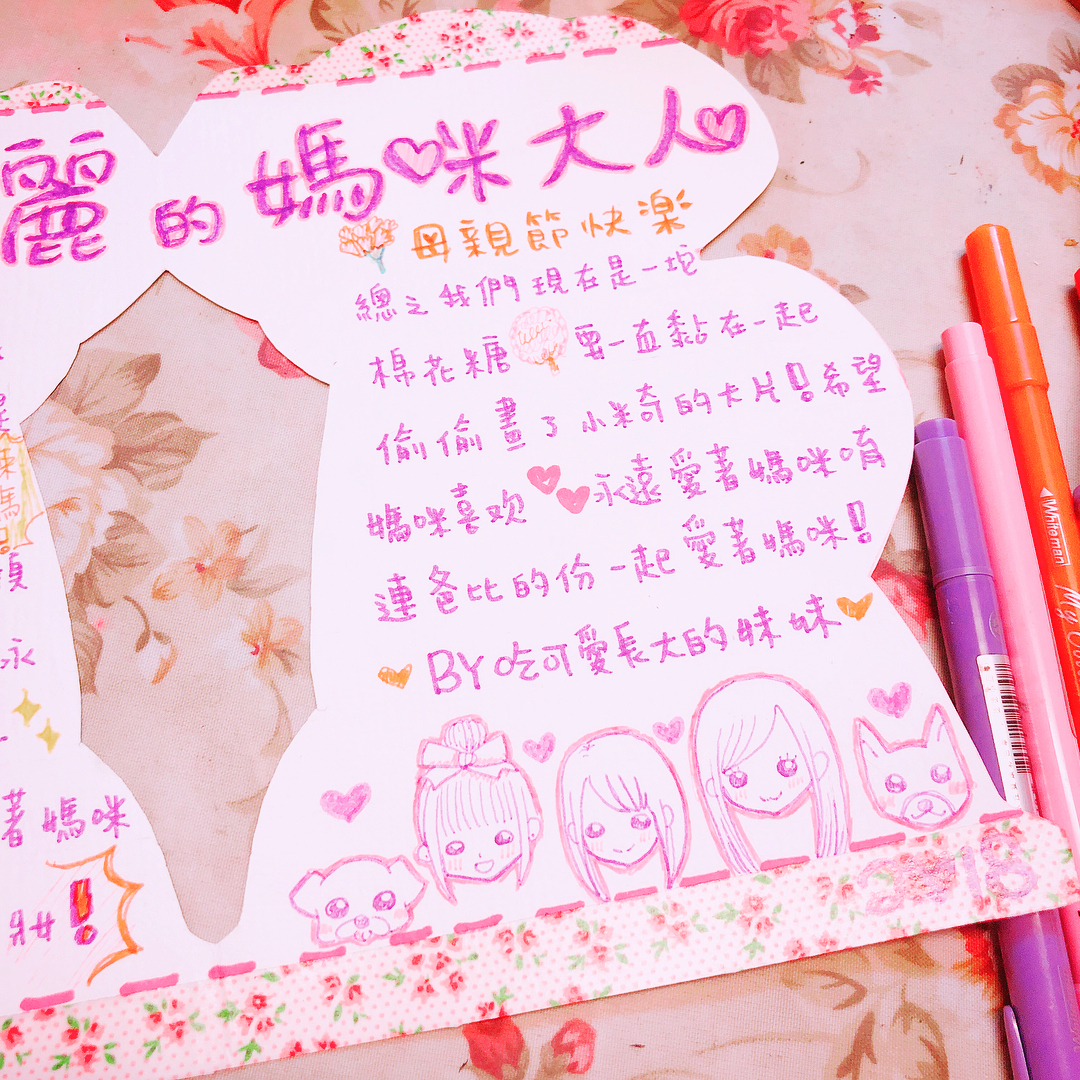 麗的媽咪大人
母親節快樂
總之我們現在是一坨
棉花糖要一直黏在一起
偷偷畫了小米奇的卡片！希望
媽咪喜欢永遠愛著媽咪唷
連爸比的份一起愛著媽咪！
BY吃可愛長大的妹妹
永
著媽咪
！
2018
Whiteman
My Color